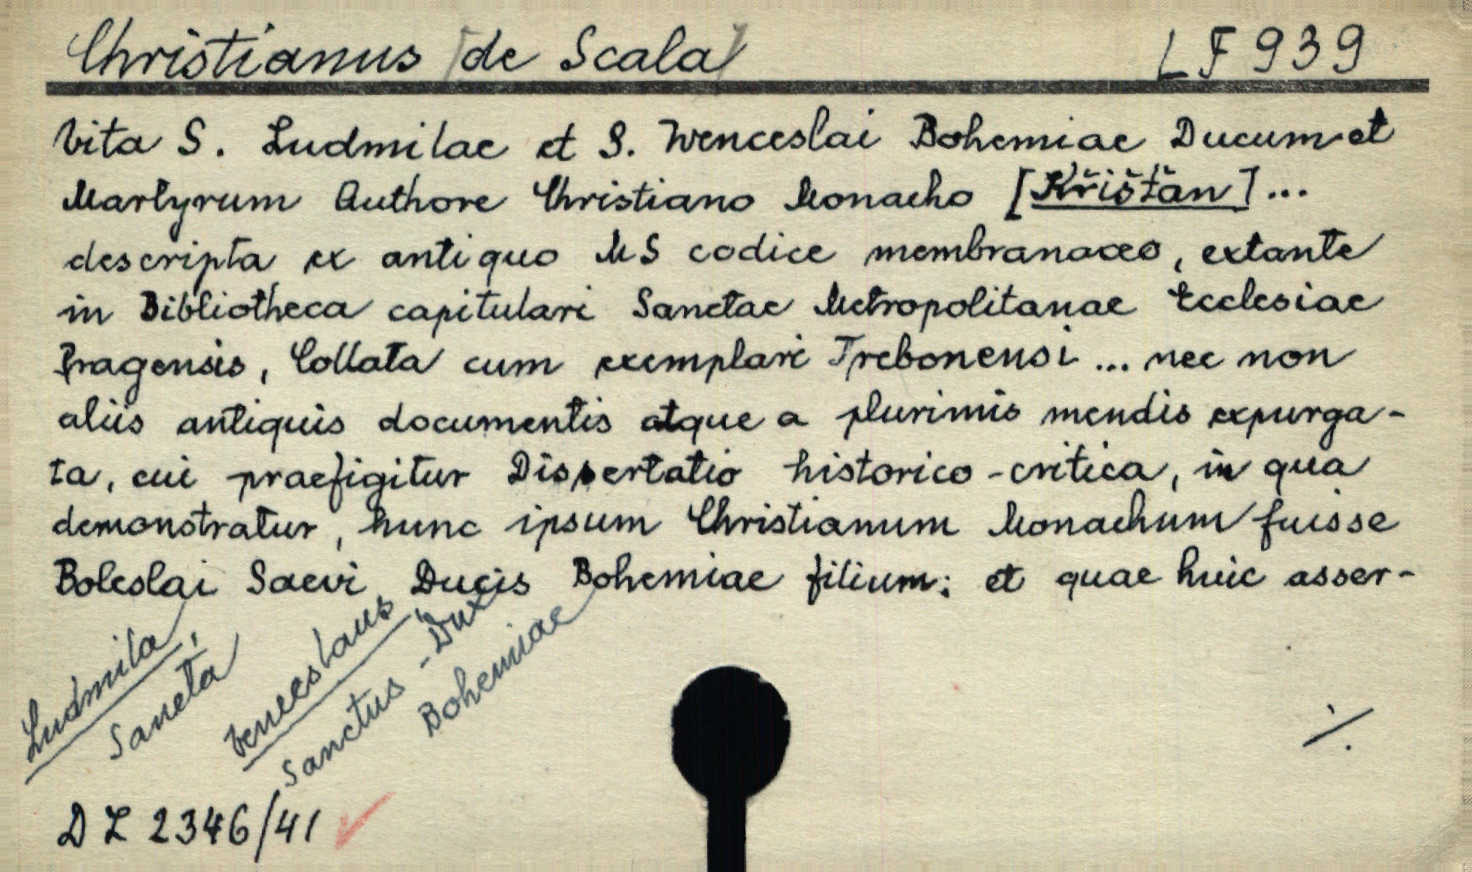 Christianus [de Scala] LF 939
Vita S. Ludmilae et S. Wenceslai Bohemiae Ducum et
Martyrum Authore Christiano Monacho [Křišťan] ...
descripta ex antiquo MS codice membranaceo, extante
in Bibliotheca capitulari Sanctae Metropolitanae Ecclesiae
Pragensis, Collata cum exemplari Trebonensi ... nec non
aliis antiquis documentis atque a plurimis mendis expurga-
ta, cui praefigitur Dissertatio historico-critica, in qua
demonstratur, hunc ipsum Christianum Monachum fuisse
Boleslai Saevi Ducis Bohemiae filium; et quae huic asser-
Ludmila,
Sancta
Venceslaus,
Sanctus - Dux
Bohemiae
./.
DZ 2346/41